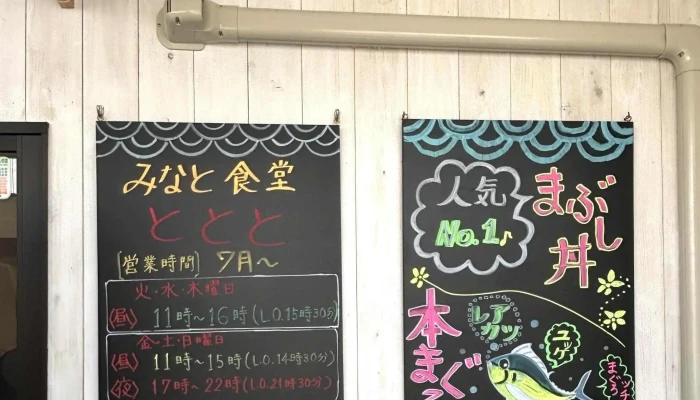 みなと食堂
ととと
[営業時間] 7月～
火・水・木曜日
〈昼〉 11時～16時(L.O.15時30分)
金・土・日曜日
〈昼〉 11時～15時(L.O.14時30分)
〈夜〉 17時～22時(L.O.21時30分)
人気
No.1♪
まぶし
丼
本まぐ
レア
カツ
ユッケ